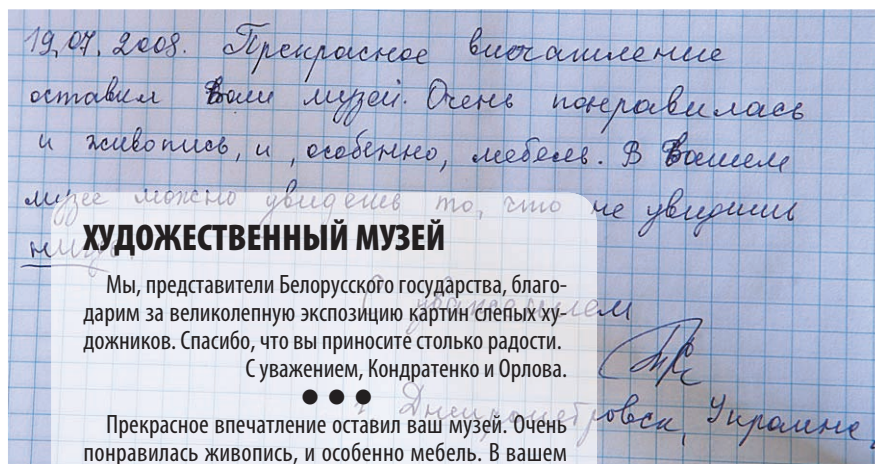 19.07.2008. Прекрасное впечатление
оставил Ваш музей. Очень понравилась
и живопись, и, особенно, мебель. В Вашем
музее можно увидеть то, что не увидишь
ХУДОЖЕСТВЕННЫЙ МУЗЕЙ
Мы, представители Белорусского государства, благо-
дарим за великолепную экспозицию картин слепых ху-
дожников. Спасибо, что вы приносите столько радости.
С уважением, Кондратенко и Орлова.
● ● ●
Прекрасное впечатление оставил ваш музей. Очень
понравилась живопись, и особенно мебель. В вашем
С уважением
г. Днепропетровск, Украина